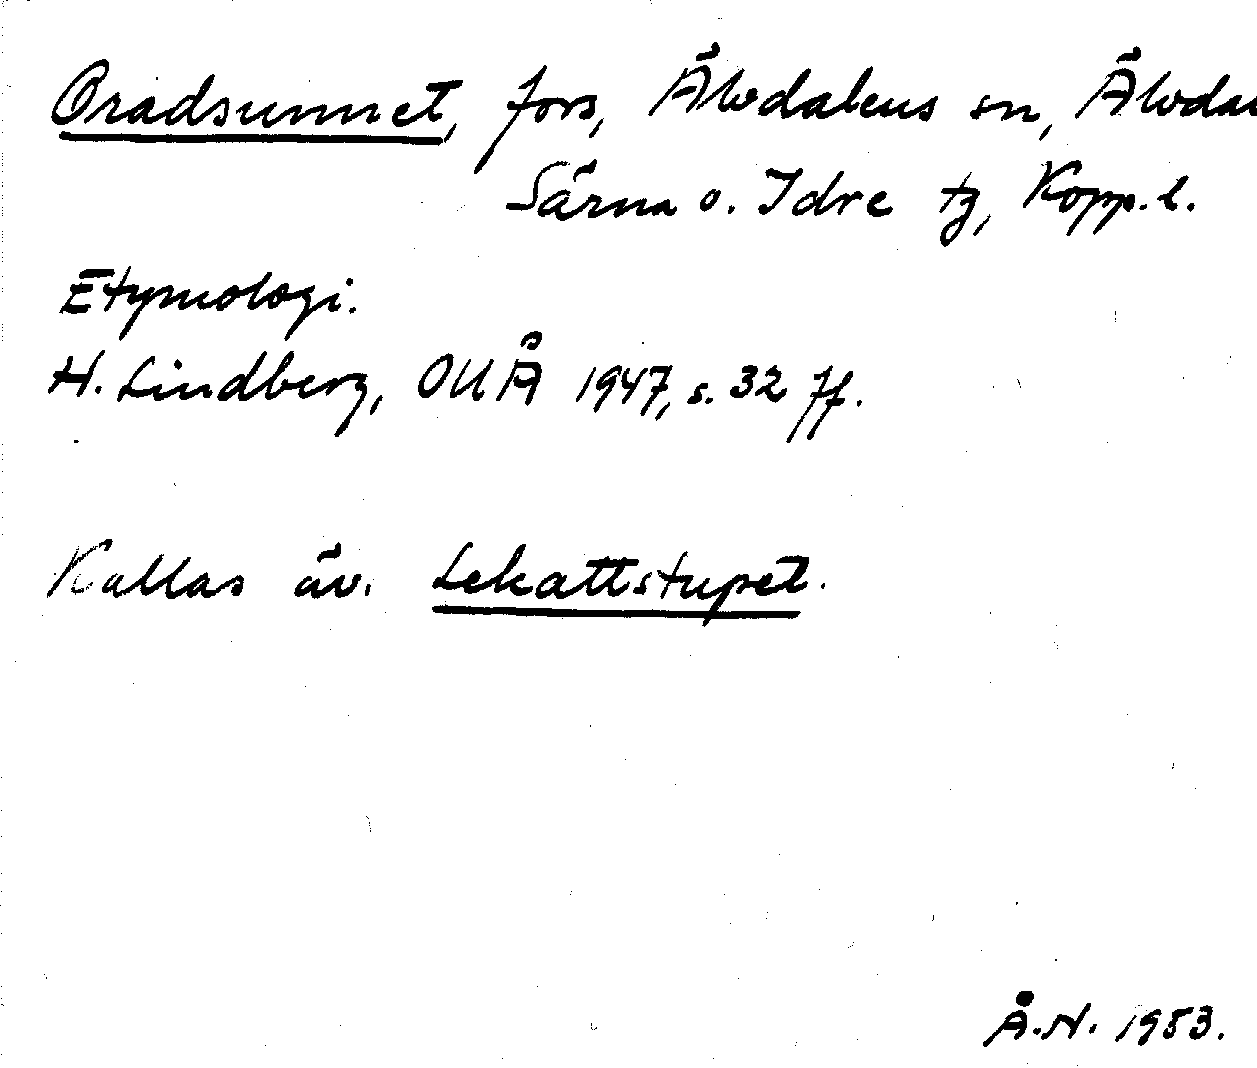 Oradsunnet, fors, Älvdalens sn, Älvdal
Särna o. Idre tg, Kopp. l.
Etymologi.
H. Lindberg, OUÅ 1947, s. 32 ff.
Kallas äv. Lekattstupet.
Å.N. 1953.